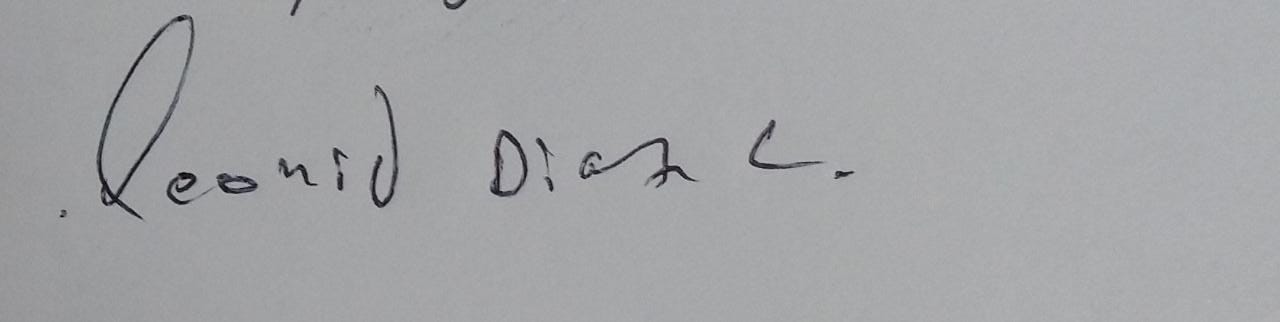 Leonid Diaz C.